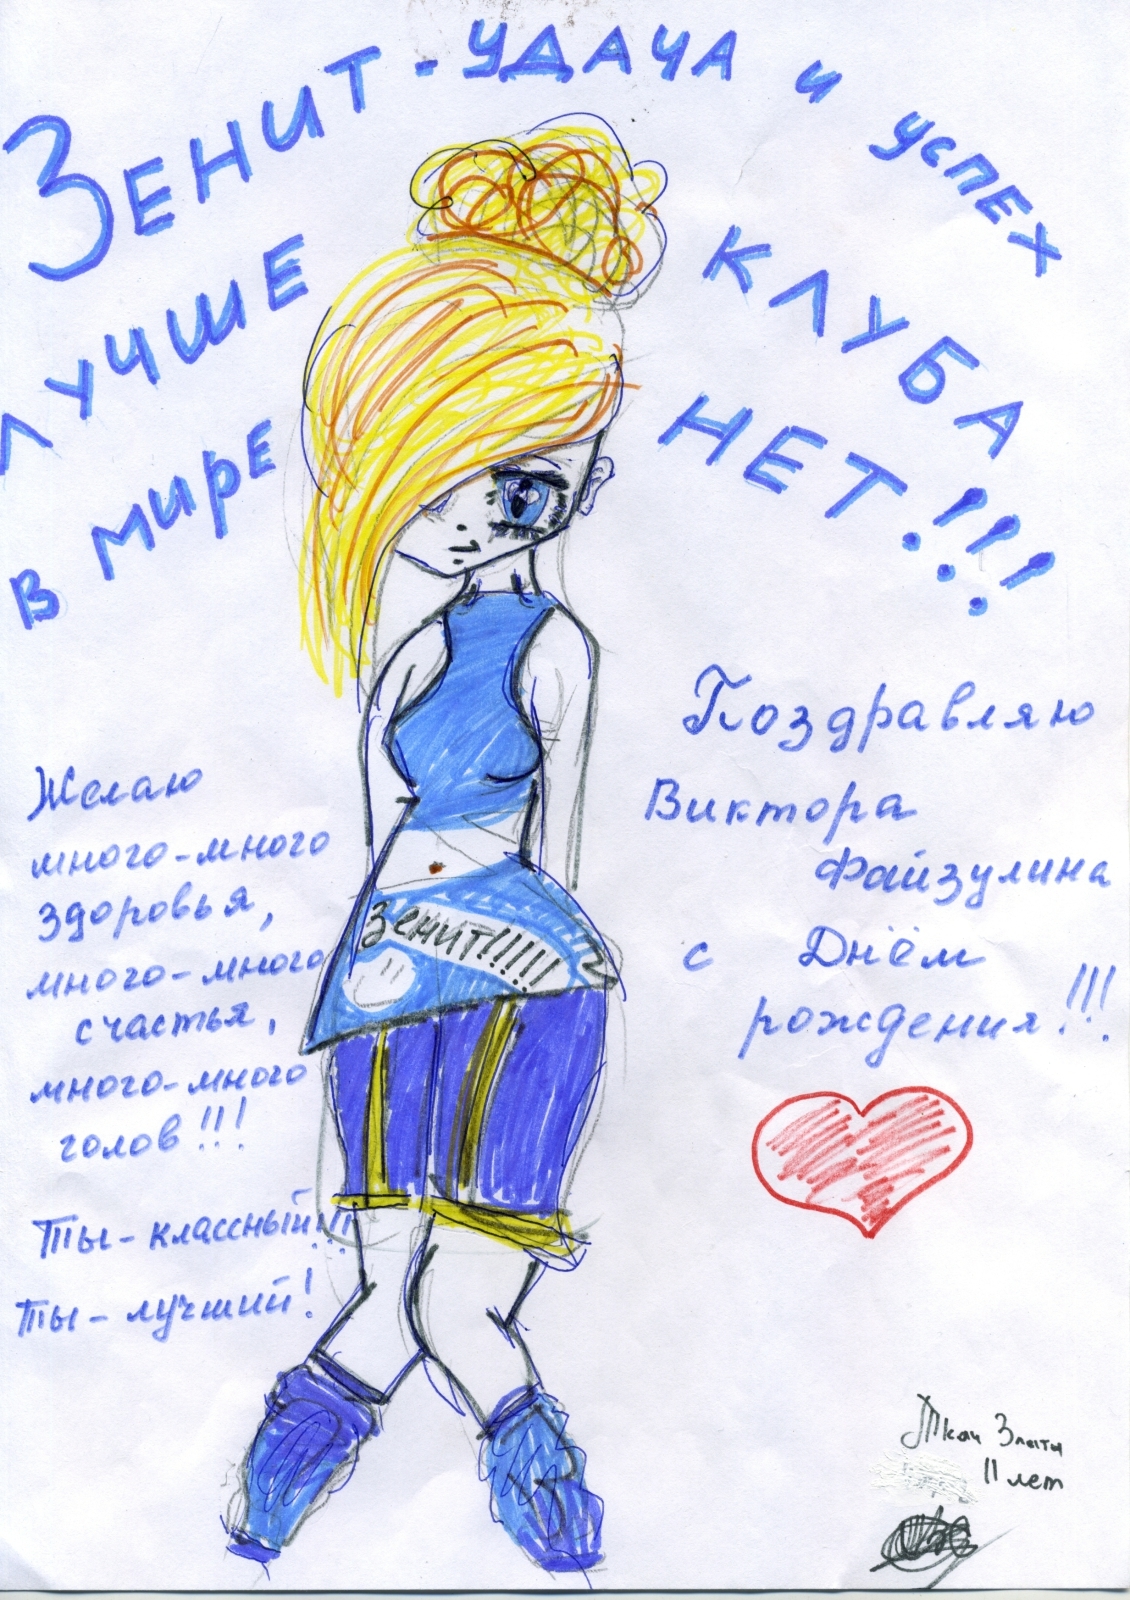 ЗЕНИТ - УДАЧА и УСПЕХ
ЛУЧШЕ КЛУБА
В МИРЕ НЕТ!!!
Поздравляю
Виктора
Файзулина
с Днём
рождения!!!
Желаю
много-много
здоровья,
много-много
счастья,
много-много
голов!!!
Ты - классный!!!
Ты - лучший!
ЗЕНИТ!!!!!
Ткач Златы
11 лет